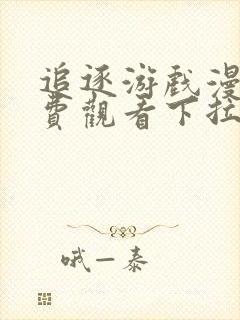 追逐游戏漫
費觀看下拉
哦一泰